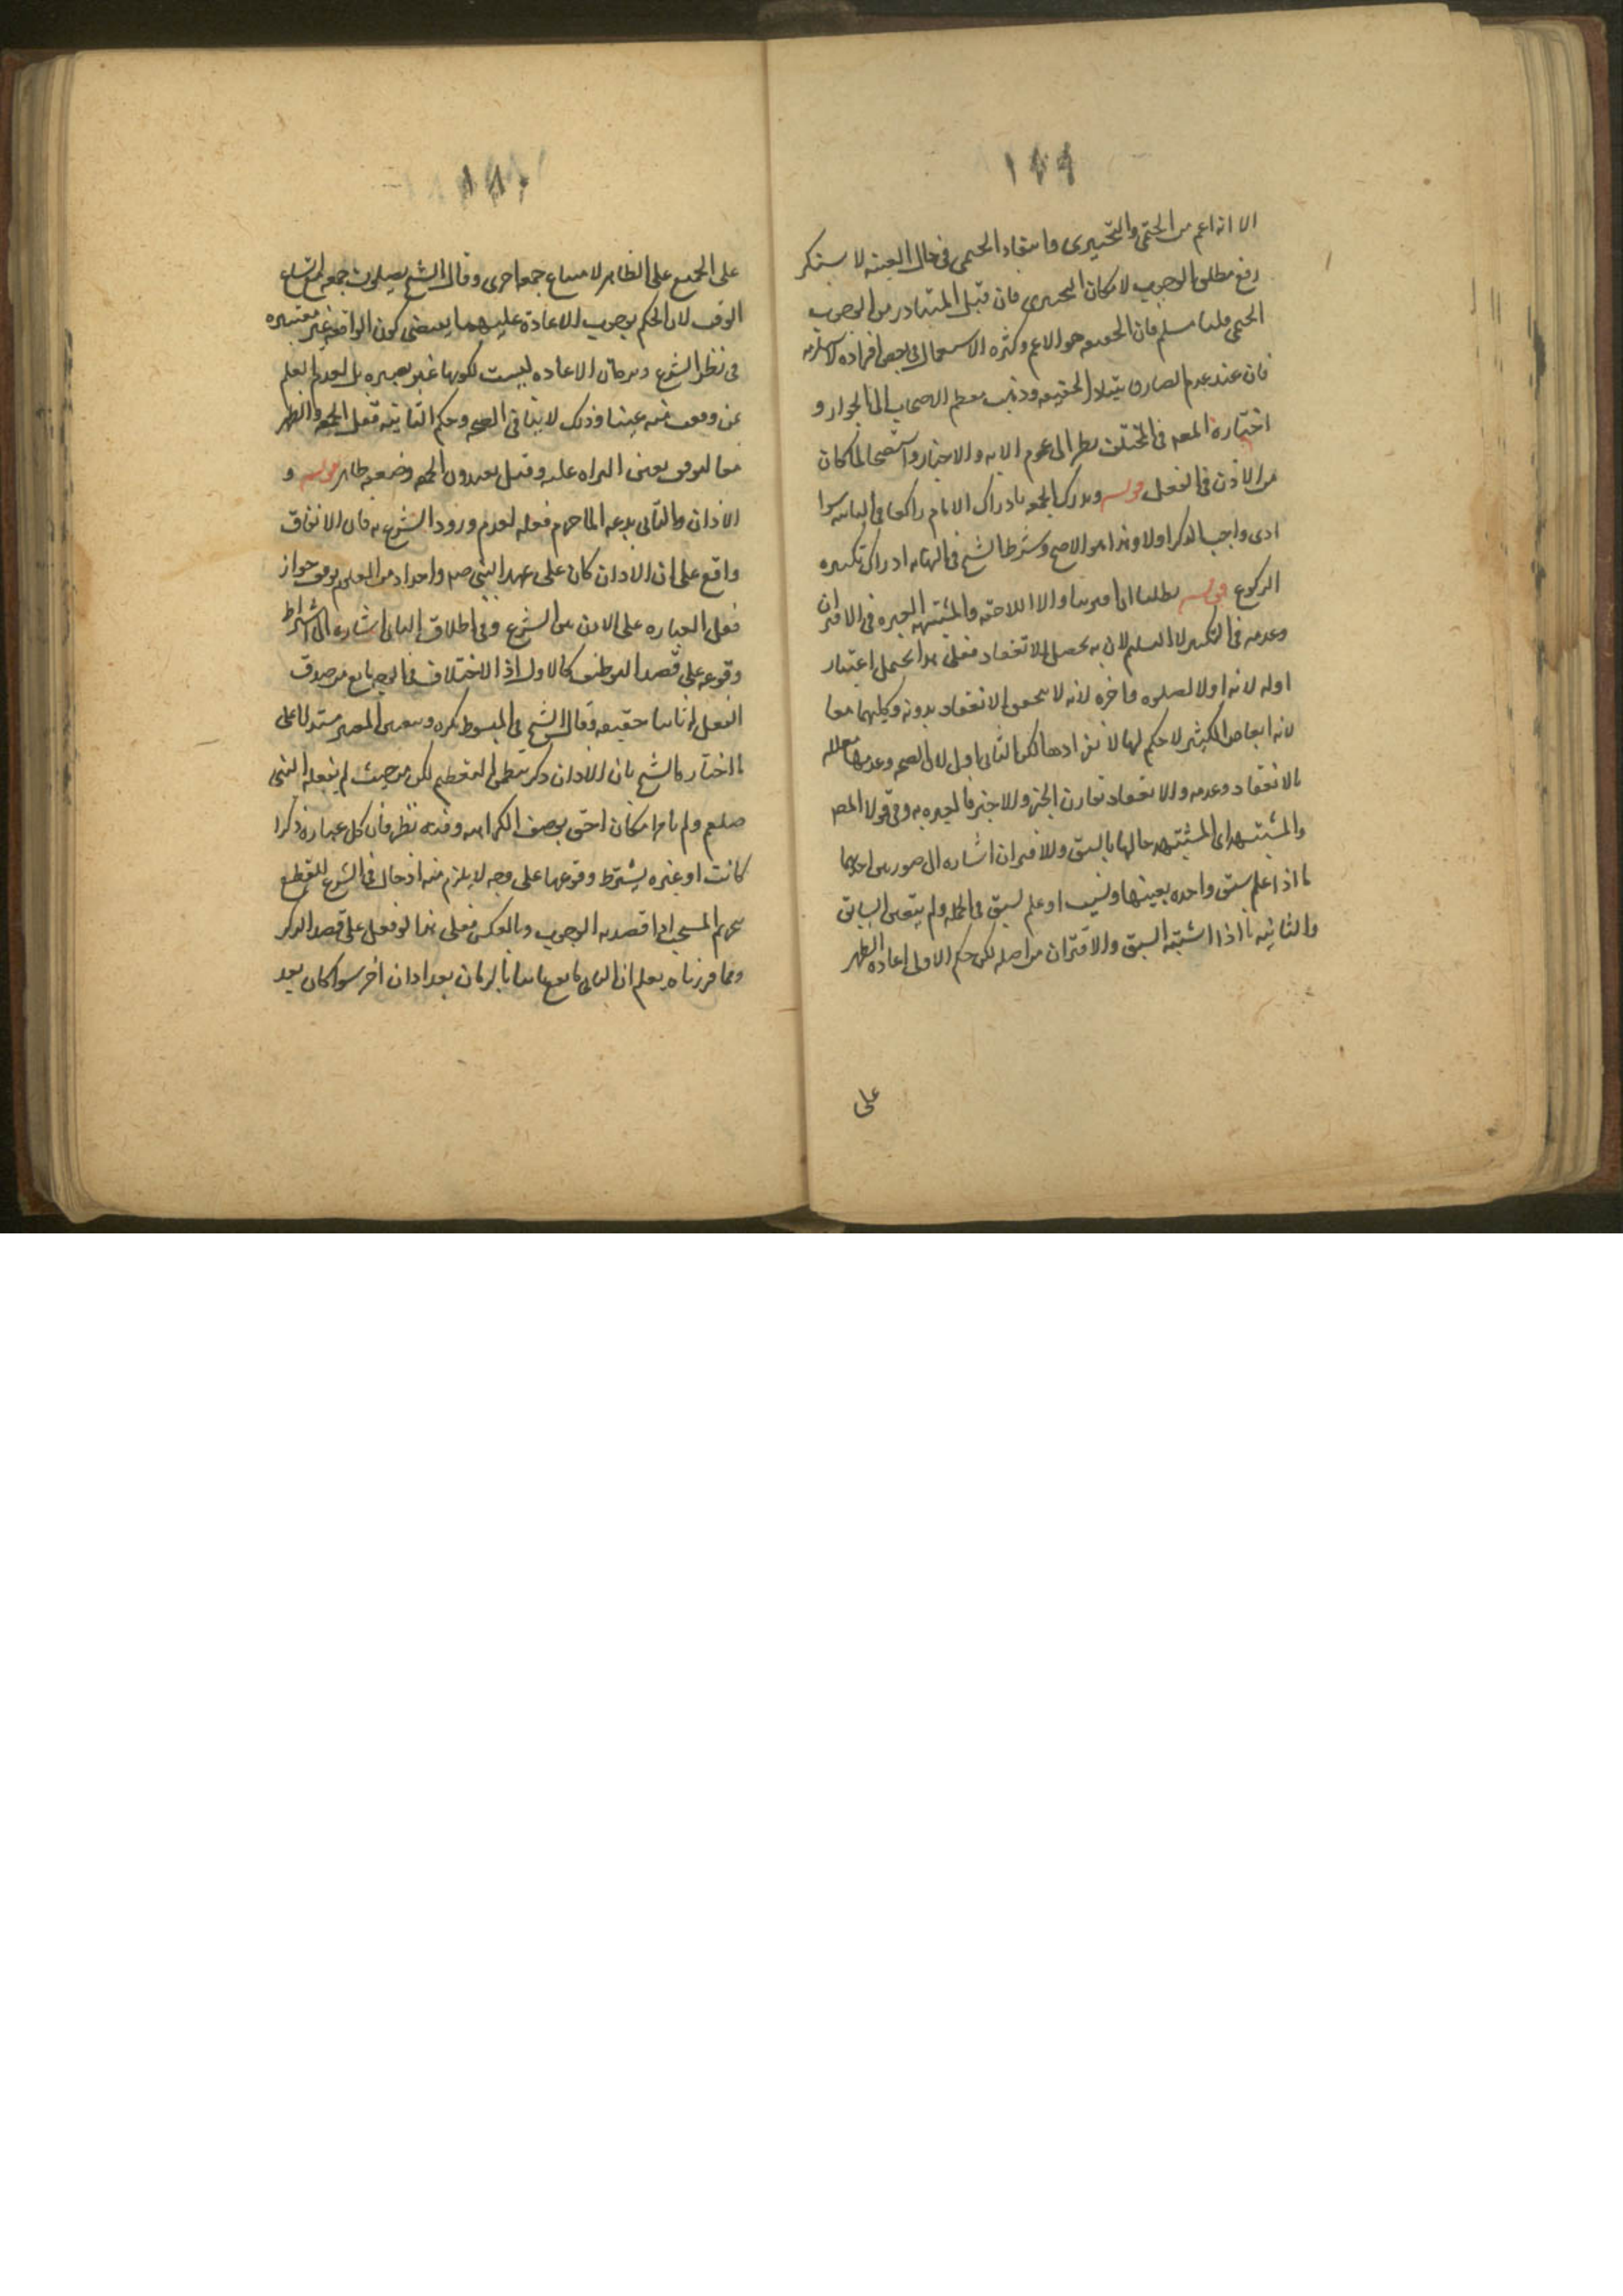 ١٧٩
الا انه اعم من الحتمي والتخييرى وانتفاء الحتمى فى حال الغيبة لا يستلزم
رفع مطلق الوجوب لامكان التخييرى فان قيل المتبادر من الوجوب
الحتمى قلنا مسلم فان الحقيقه هو الاعم وكثره الاستعمال فى بعض افراده
فان عند عدم الصارف الحقيقه وذهب معظم الاصحاب الى الجواز و
اختاره المصه فى المختلف نظرا الى عموم الايه والاخبار واستصحابا لما كان
من الاذن فى الفعل قوله ويدرك الجمعه بادراك الامام راكعا فى الثانيه سوا
ادى واجب الذكر اولا وهذا هو الاصح وشرط الشيخ فى النهايه ادراك تكبيره
الركوع قوله بطلتا ان اقترنتا والا اللاحقه والمشتبهه المعتبره فى الاقتران
وعدمه فى التكبير لا التسليم لان به يحصل الانعقاد فعلى هذا يحتمل اعتبار
اوله لانه اول الصلوه واخره لانه لا يتحقق الانعقاد بدونه وكليهما معا
لانه ابعاض التكبير لا حكم لها لكن الثانى اولى لان الصحه وعدمها معلله
بالانعقاد وعدمه والانعقاد تقارن الجزء الاخير فالعبره به وفى قول المص
والمشتبهه اى المشتبه حالها بالسبق والاقتران اشاره الى صورتين احديهما
ما اذا علم سبق واحده بعينها ونسيت او علم سبق فى الجمله ولم يتعين السابق
والثانيه ما اذا اشتبه السبق والاقتران من اصله لكن حكم الاولى اعاده الظهر
على
١٨٠
على الجميع على الظاهر لامتناع جمعه اخرى وقال الشيخ يصلون جمعه مع اتساع
الوقت لان الحكم بوجوب الاعادة عليهما يقتضى كون الواقعه غير معتبره
فى نظر الشرع ويرد بان الاعاده ليست لكونها غير معتبره بل لعدم العلم
بمن وقعت منه عينا وذلك لا ينافى الصحه وحكم الثانيه فعل الجمعه والظهر
معا لتوقف يقين البراه عليه وقيل يعيدون الجمعه وضعفه ظاهر قوله و
الاذان الثانى بدعه الماحرم فعله لعدم ورود الشرع به فان الاتفاق
واقع على ان الاذان كان على عهد النبى صلم واحدا ومن المعلوم توقف جواز
فعل العباره على الاذن من الشرع وفى اطلاق الثانى اشاره الى اشتراط
وقوعه على قصد التوظيف كالاول اذ الاختلاف فى الوجه مانع من صدق
الفعل ثانيا حقيقه وقال الشيخ فى المبسوط يكره وتبعه المصر مستدلا على
ما اختار كالشيخ بان الاذان ذكر يتضمن التعظيم لكن من حيث لم يفعله النبى
صلعم ولم يامر به كان احق بوصف الكراهيه وفيه نظر فان كل عباره ذكرا
كانت او غيره يشترط وقوعها على وجه لا يلزم منه ادخال فى الشرع للقطع
بتحريم المستحب اذا قصد به الوجوب وبالعكس فعلى هذا لو فعل على قصد الذكر
ومما قررناه يعلم ان الثانى ما يقع ثانيا بالزمان بعد اذان اخر سوا كان بعد